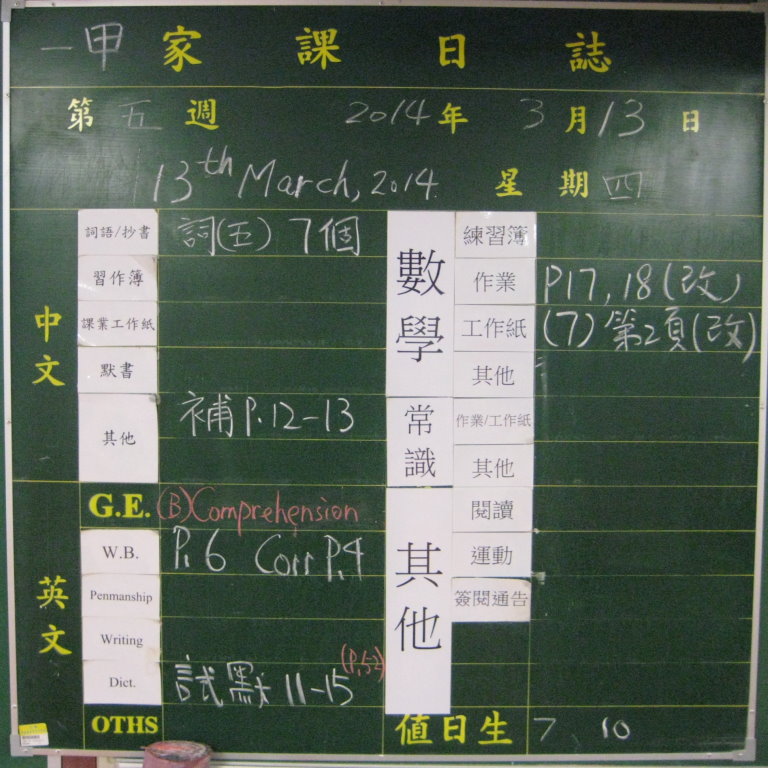 一甲 家課日誌
第五週 2014年3月13日
13th March, 2014 星期四
中文
詞語/抄書 詞(五) 7個
習作簿
課業工作紙
默書
其他 補P.12-13
英文
G.E. (B)Comprehension
W.B. P.6 Corr P.4
Penmanship
Writing
Dict. 試默 11-15 (P.52)
OTHS
數學
練習簿
作業 P17, 18(改)
工作紙 (7)第2頁(改)
其他
常識
作業/工作紙
其他
其他
閱讀
運動
簽閱通告
值日生 7、10